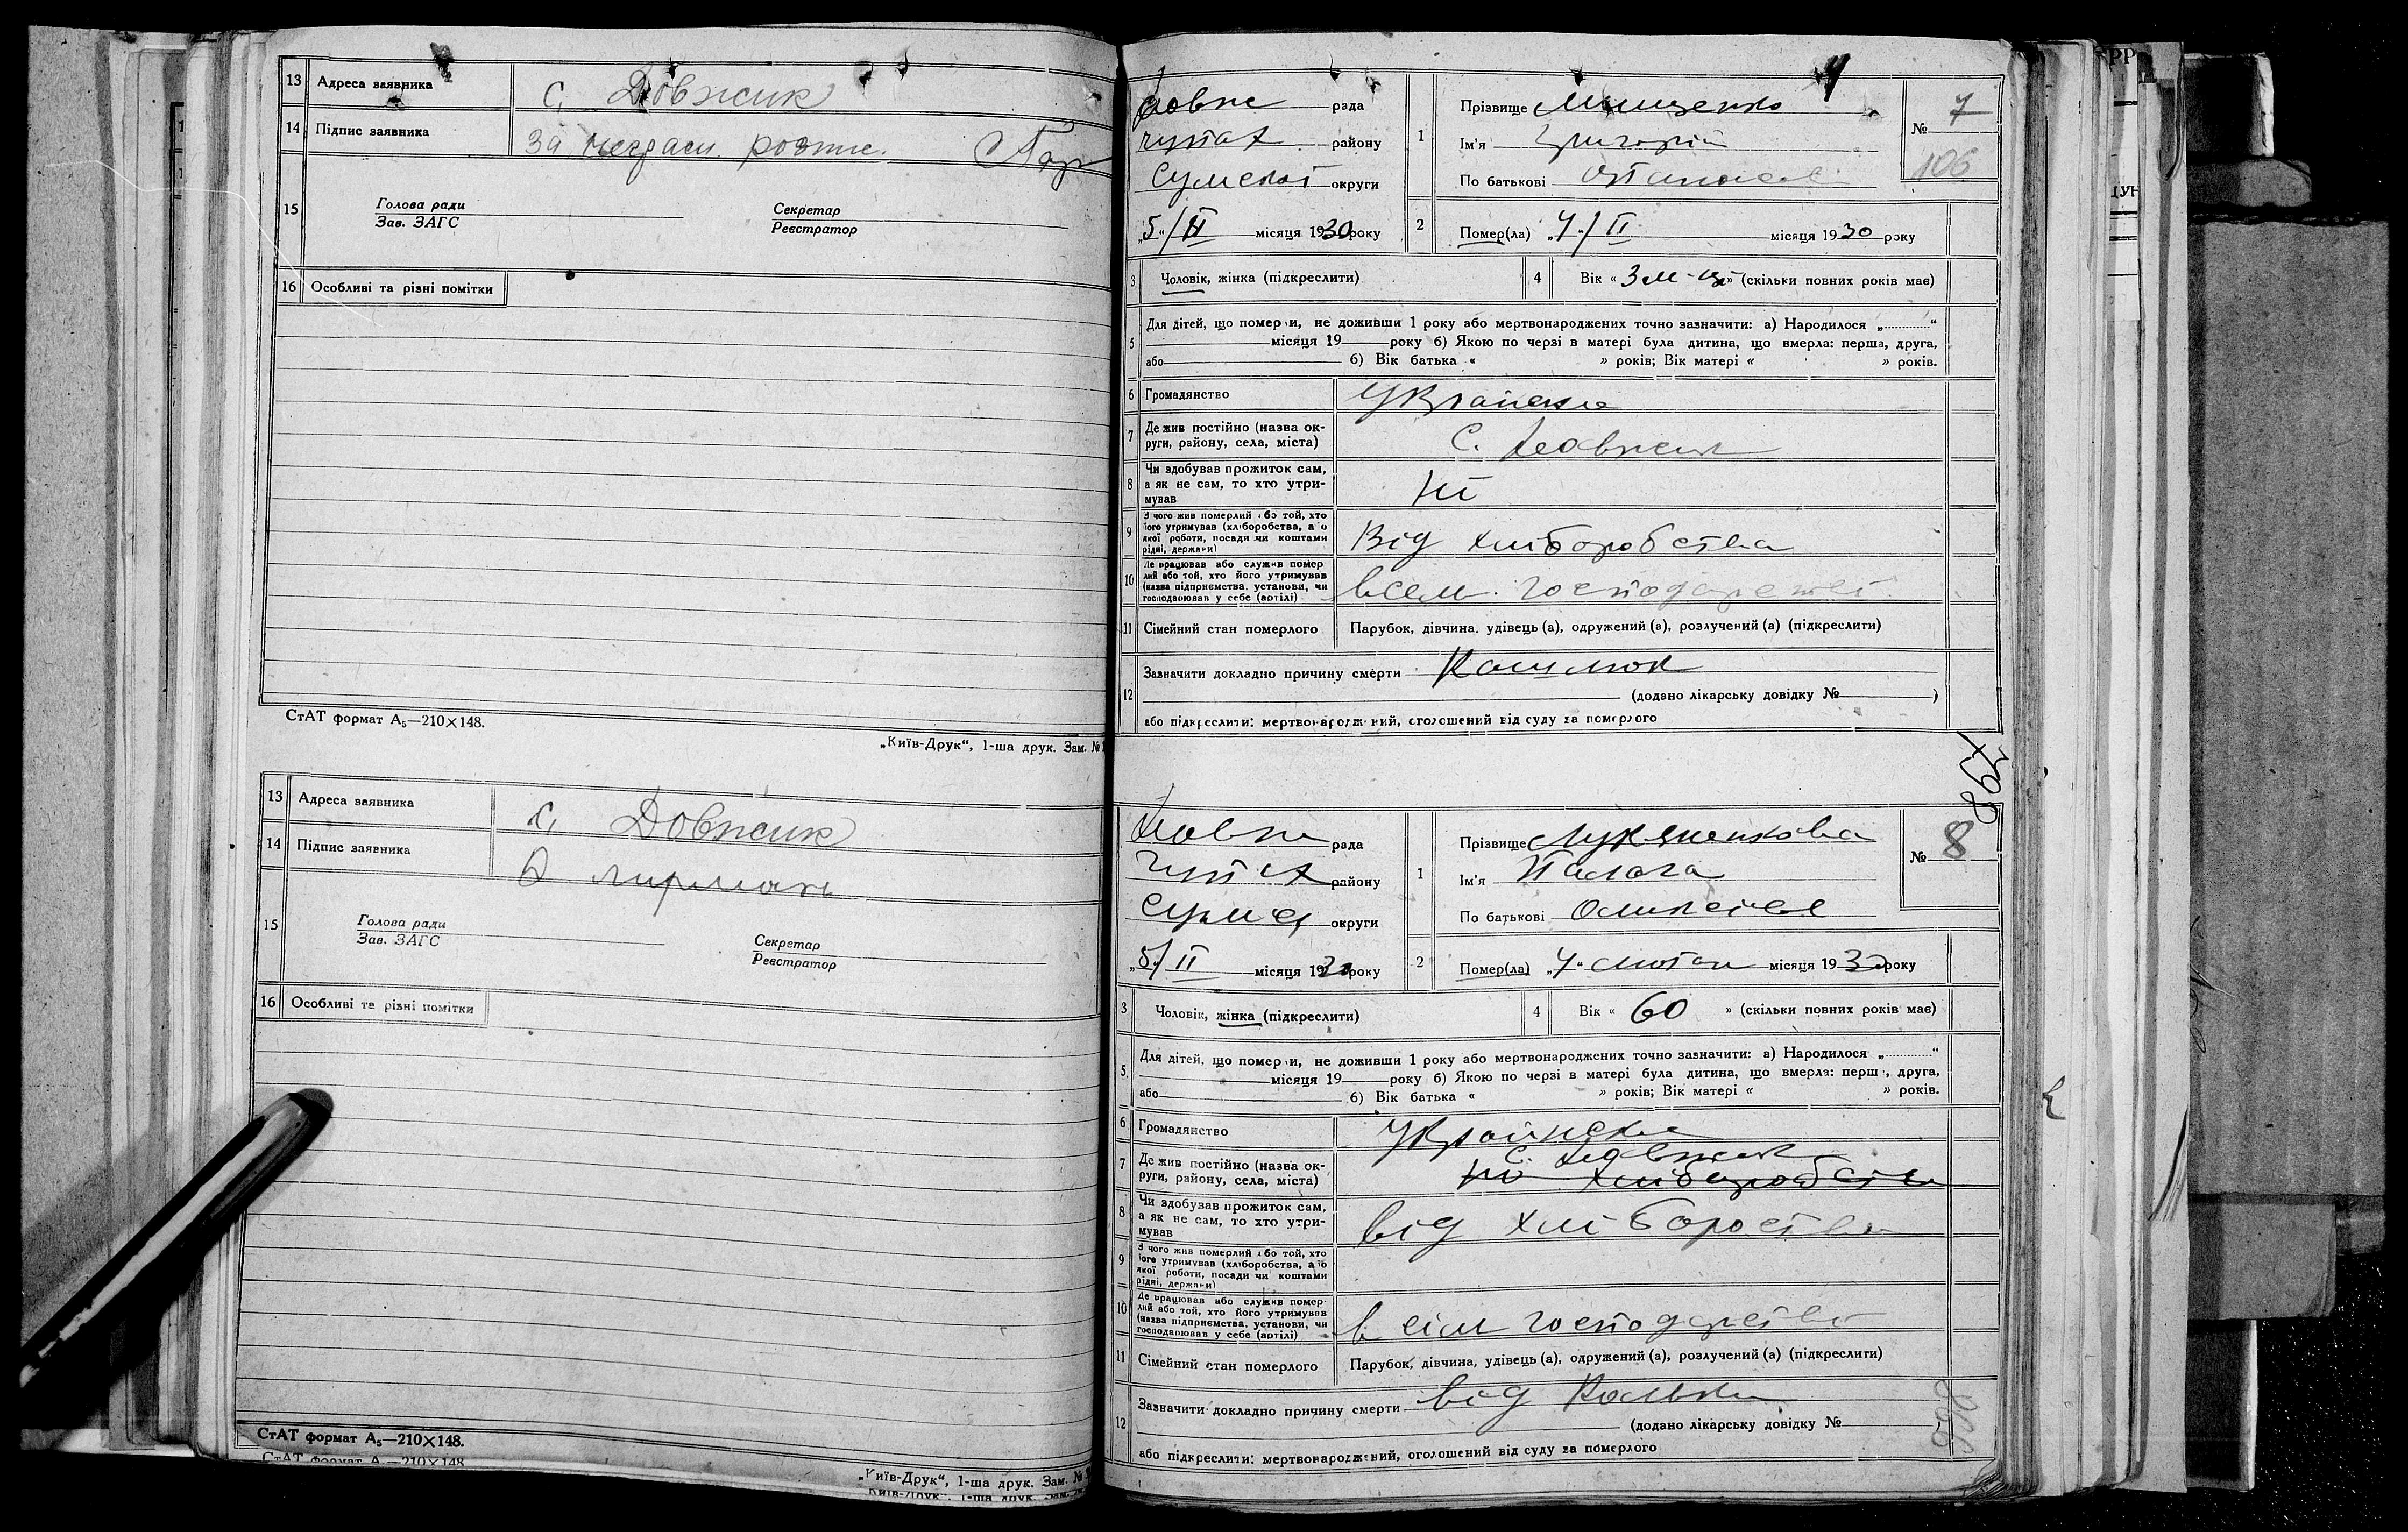 13 Адреса заявника С. Довжик
14 Підпис заявника За неграм. розпис.
15 Голова ради
Зав. ЗАГС
Секретар
Реєстратор
16 Особливі та різні помітки
СтАТ формат А₅—210×148.
„Київ-Друк“, 1-ша друк. Зам. №
13 Адреса заявника С. Довжик
14 Підпис заявника
15 Голова ради
Зав. ЗАГС
Секретар
Реєстратор
16 Особливі та різні помітки
СтАТ формат А₅—210×148.
„Київ-Друк“, 1-ша друк. Зам. №
Довже рада
району
Сумської округи
„5“/II місяця 1930 року
1 Прізвище Мищенко
Ім'я Григорій
По батькові
№ 7
106
2 Помер(ла) „4“/II місяця 1930 року
3 Чоловік, жінка (підкреслити)
4 Вік « 3 м-ці » (скільки повних років має)
5 Для дітей, що померли, не доживши 1 року або мертвонароджених точно зазначити: а) Народилося „............“
місяця 19 року б) Якою по черзі в матері була дитина, що вмерла: перша, друга,
або б) Вік батька « » років; Вік матері « » років.
6 Громадянство Українське
7 Де жив постійно (назва ок-
руги, району, села, міста) С. Довжик
8 Чи здобував прожиток сам,
а як не сам, то хто утри-
мував Ні
9 З чого жив померлий або той, хто
його утримував (хліборобства, або
якої роботи, посади чи коштами
рідні, держави) Від хліборобства
10 Де працював або служив помер-
лий або той, хто його утримував
(назва підприємства, установи, чи
господарював у себе (артілі) в сем. господарстві
11 Сімейний стан померлого Парубок, дівчина, удівець (а), одружений (а), розлучений (а) (підкреслити)
12 Зазначити докладно причину смерти Кашлюк
(додано лікарську довідку № )
або підкреслити: мертвонароджений, оголошений від суду за померлого
867
Довже рада
району
округи
„5“/II місяця 1930 року
1 Прізвище Лукяненкова
Ім'я Палага
По батькові
№ 8
2 Помер(ла) „4“ лютого місяця 1930 року
3 Чоловік, жінка (підкреслити)
4 Вік « 60 » (скільки повних років має)
5 Для дітей, що померли, не доживши 1 року або мертвонароджених точно зазначити: а) Народилося „............“
місяця 19 року б) Якою по черзі в матері була дитина, що вмерла: перша, друга,
або б) Вік батька « » років; Вік матері « » років.
6 Громадянство Українське
7 Де жив постійно (назва ок-
руги, району, села, міста) С. Довжик
8 Чи здобував прожиток сам,
а як не сам, то хто утри-
мував від хлібороства
9 З чого жив померлий або той, хто
його утримував (хліборобства, або
якої роботи, посади чи коштами
рідні, держави)
10 Де працював або служив помер-
лий або той, хто його утримував
(назва підприємства, установи, чи
господарював у себе (артілі) в сім господарстві
11 Сімейний стан померлого Парубок, дівчина, удівець (а), одружений (а), розлучений (а) (підкреслити)
12 Зазначити докладно причину смерти від
(додано лікарську довідку №
або підкреслити: мертвонароджений, оголошений від суду за померлого